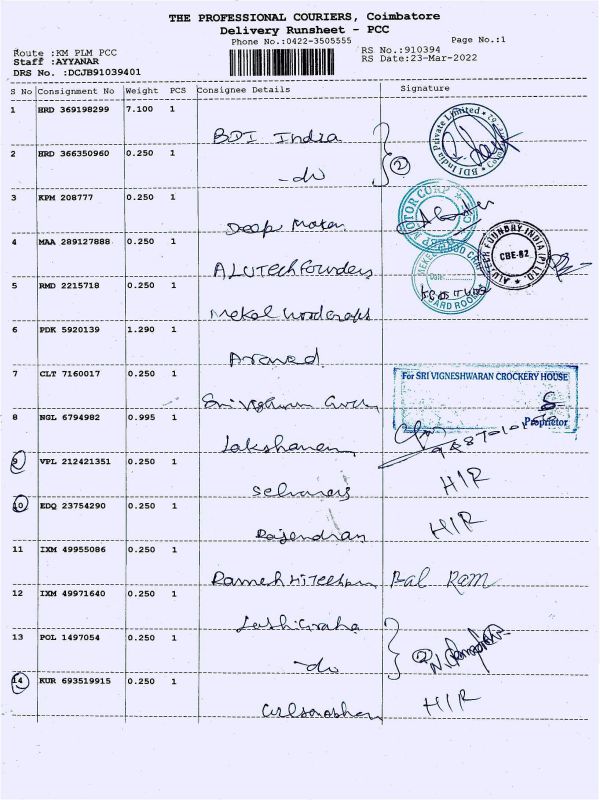 THE PROFESSIONAL COURIERS, Coimbatore
Delivery Runsheet - PCC
Phone No.:0422-3505555
Page No.:1
Route :KM PLM PCC
Staff :AYYANAR
DRS No. :DCJB91039401
RS No.:910394
RS Date:23-Mar-2022
S No Consignment No Weight PCS Consignee Details Signature
1 HRD 369198299 7.100 1
BDI India
BDI India Private Limited
2 HRD 366350960 0.250 1
-do
2
3 KPM 208777 0.250 1
Deep Motor
MOTOR CORP
4 MAA 289127888 0.250 1
ALUTech Founders
ALUTECH FOUNDRY INDIA (P) LTD.
CBE-82
5 RMD 2215718 0.250 1
Mekal Woodcrafts
Date
GUARD ROOM
6 PDK 5920139 1.290 1
7 CLT 7160017 0.250 1
For SRI VIGNESHWARAN CROCKERY HOUSE
Proprietor
8 NGL 6794982 0.995 1
9 VPL 212421351 0.250 1
HIR
10 EDQ 23754290 0.250 1
Rajendran
HIR
11 IXM 49955086 0.250 1
Ramesh Bal Ram
12 IXM 49971640 0.250 1
13 POL 1497054 0.250 1
-do
2
14 KUR 693519915 0.250 1
HIR